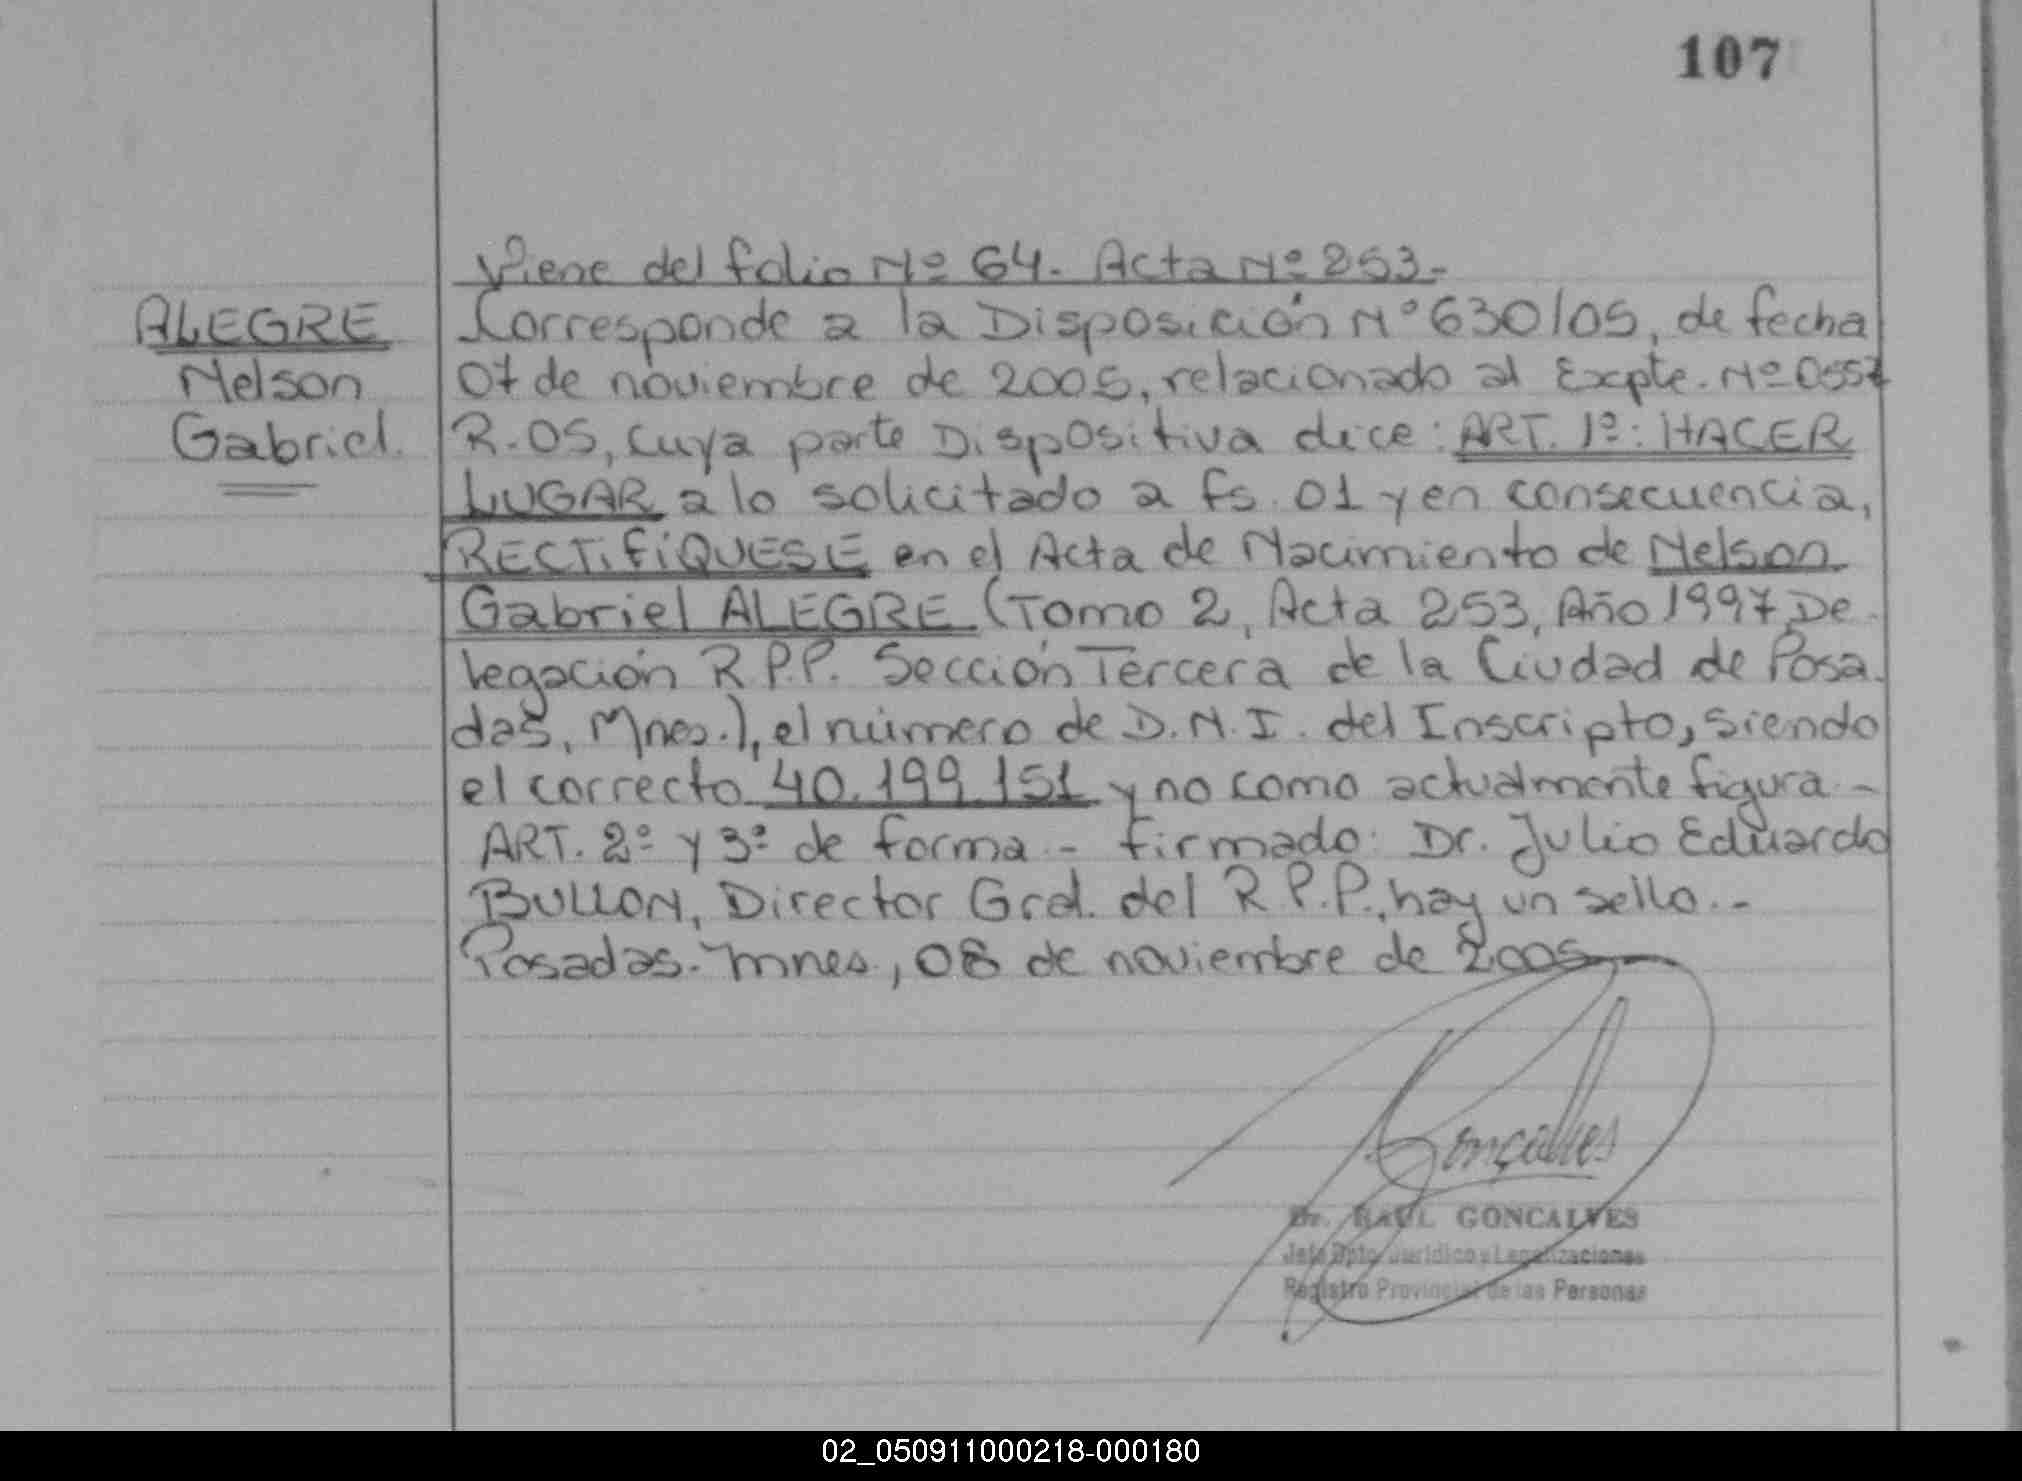 107
Viene del folio Nº 64. Acta Nº 253.-
ALEGRE
Nelson
Gabriel.
Corresponde a la Disposición Nº 630/05, de fecha
07 de noviembre de 2005, relacionado al Expte. Nº 0557
R-05, cuya parte Dispositiva dice: ART. 1º: HACER
LUGAR a lo solicitado a fs. 01 y en consecuencia,
RECTIFÍQUESE en el Acta de Nacimiento de Nelson
Gabriel ALEGRE (Tomo 2, Acta 253, Año 1997, De-
legación R.P.P. Sección Tercera de la Ciudad de Posa-
das, Mnes.), el número de D.N.I. del Inscripto, siendo
el correcto 40.199.151 y no como actualmente figura.-
ART. 2º y 3º de forma.- firmado: Dr. Julio Eduardo
BULLON, Director Gral. del R.P.P., hay un sello.-
Posadas. Mnes., 08 de noviembre de 2005
Goncalves
Dr. RAUL GONCALVES
Jefe Dpto. Jurídico y Legalizaciones
Registro Provincial de las Personas
02_050911000218-000180